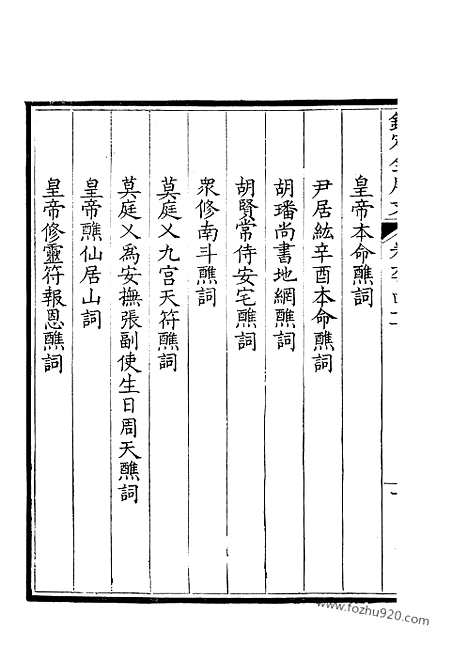 皇帝本命醮詞
尹居紘辛酉本命醮詞
胡璠尚書地網醮詞
胡賢常侍安宅醮詞
衆修南斗醮詞
莫庭乂九宫天符醮詞
莫庭乂為安撫張副使生日周天醮詞
皇帝醮仙居山詞
皇帝修靈符報恩醮詞
www.fozhu920.com